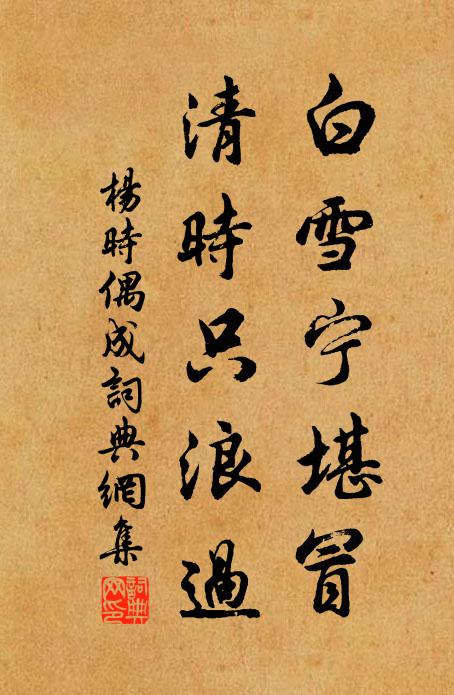 白雪宁堪冒
清時只浪過
楊時偶成詞典網集
詞典网印